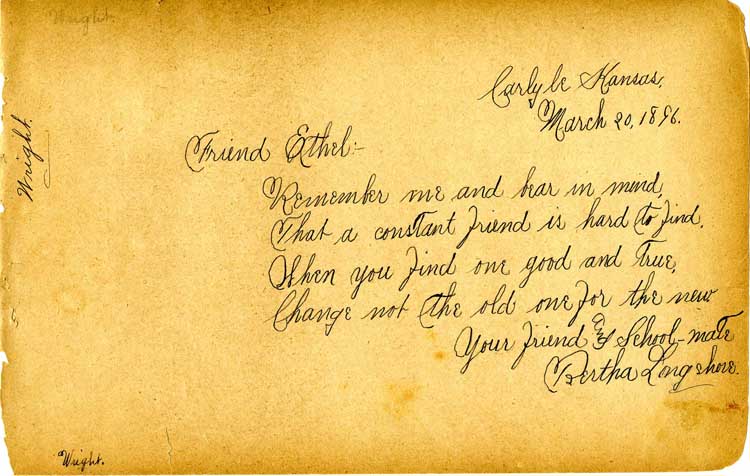 Wright.
Carlyle Kansas,
March 20, 1896.
Wright.
Friend Ethel:-
Remember me and bear in mind,
That a constant friend is hard to find.
When you find one good and true,
Change not the old one for the new
Your friend and School-mate
Bertha Longshore.
Wright.